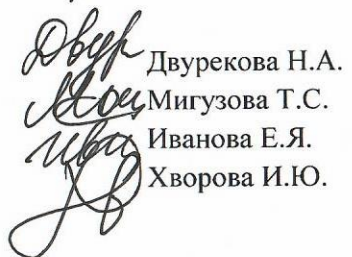 Двур Двурекова Н.А.
Мигузова Т.С.
Иванова Е.Я.
Хворова И.Ю.